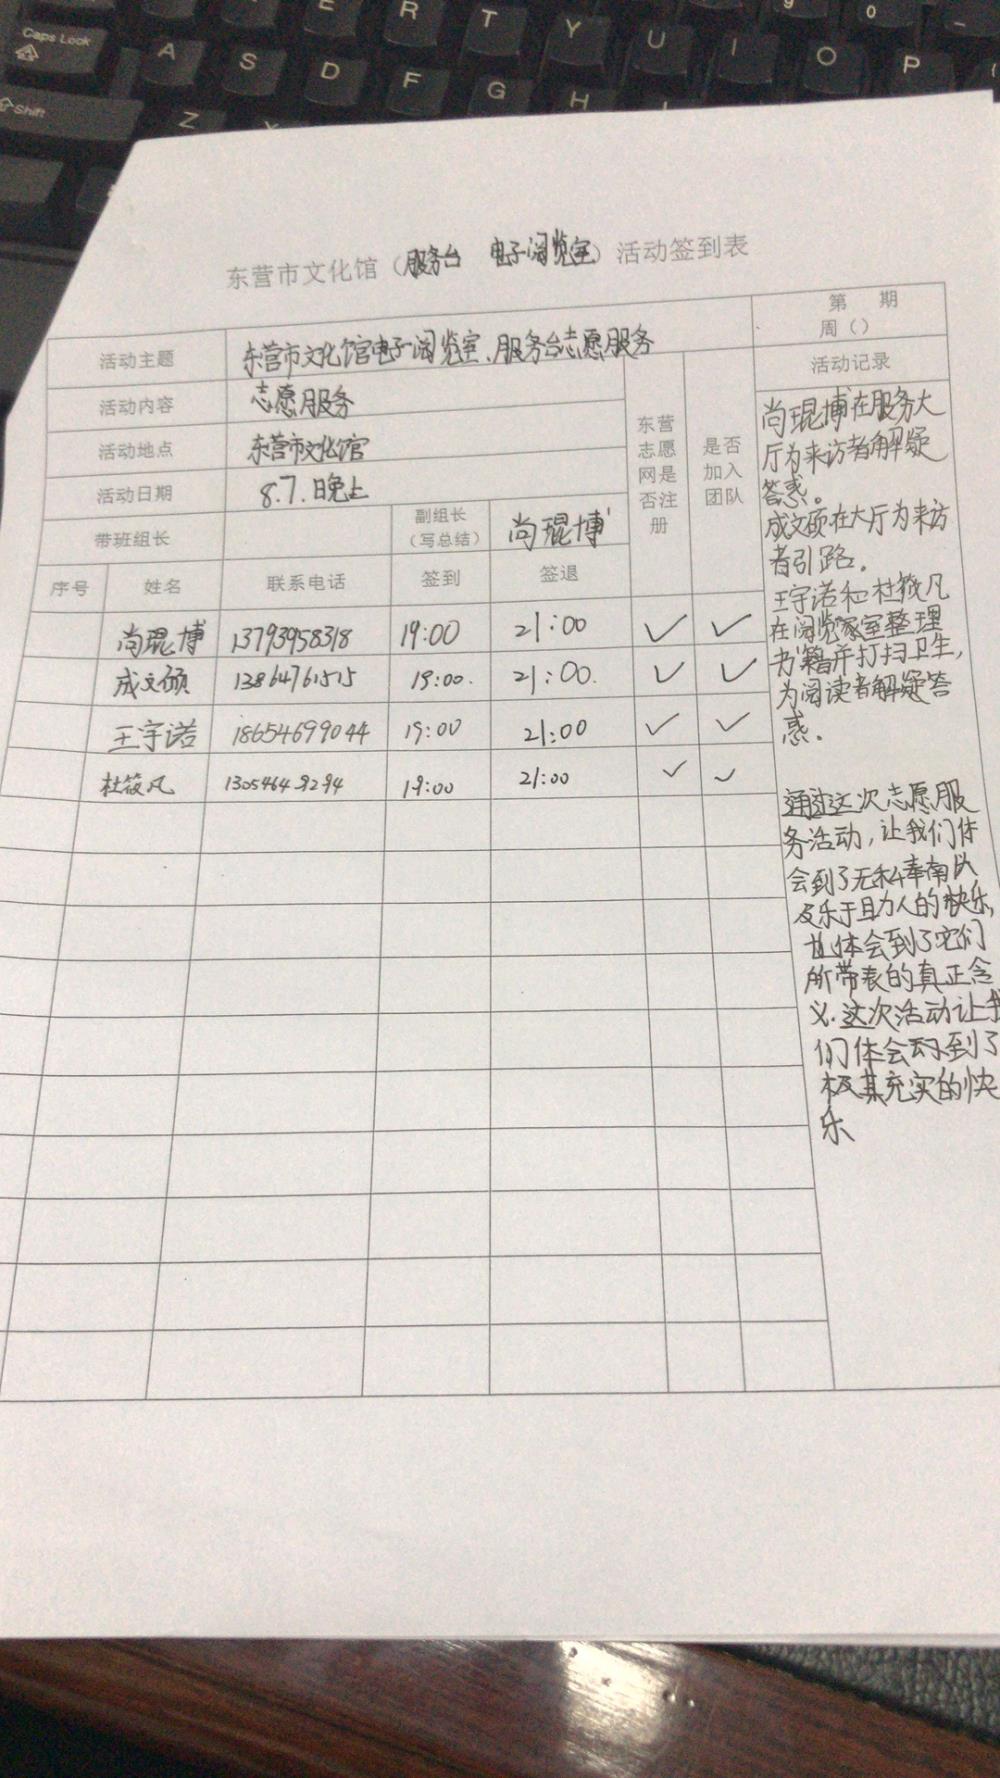 Caps Lock
E R T Y U I O P
A S D F G H
Shift
Z
9
0
东营市文化馆（服务台 电子阅览室）活动签到表
第 期
周（）
活动主题 东营市文化馆电子阅览室、服务台志愿服务
活动记录
活动内容 志愿服务
活动地点 东营市文化馆
活动日期 8.7.日晚上
东营
志愿
网是
否注
册
是否
加入
团队
带班组长 副组长
（写总结） 尚琨博
序号 姓名 联系电话 签到 签退
尚琨博 13793958318 19:00 21:00 ✓ ✓
成文硕 13864761515 19:00. 21:00. ✓ ✓
王宇诺 18654699044 19:00 21:00 ✓ ✓
杜筱凡 13054649294 19:00 21:00 ✓ ✓
尚琨博在服务大
厅为来访者解疑
答惑。
成文硕在大厅为来访
者引路。
王宇诺和杜筱凡
在阅览室整理
书籍并打扫卫生，
为阅读者解疑答
惑.
通过这次志愿服
务活动，让我们体
会到了无私奉南以
及乐于助人的快乐，
也体会到了它们
所带表的真正含
义.这次活动让我
们体会到了
极其充实的快
乐